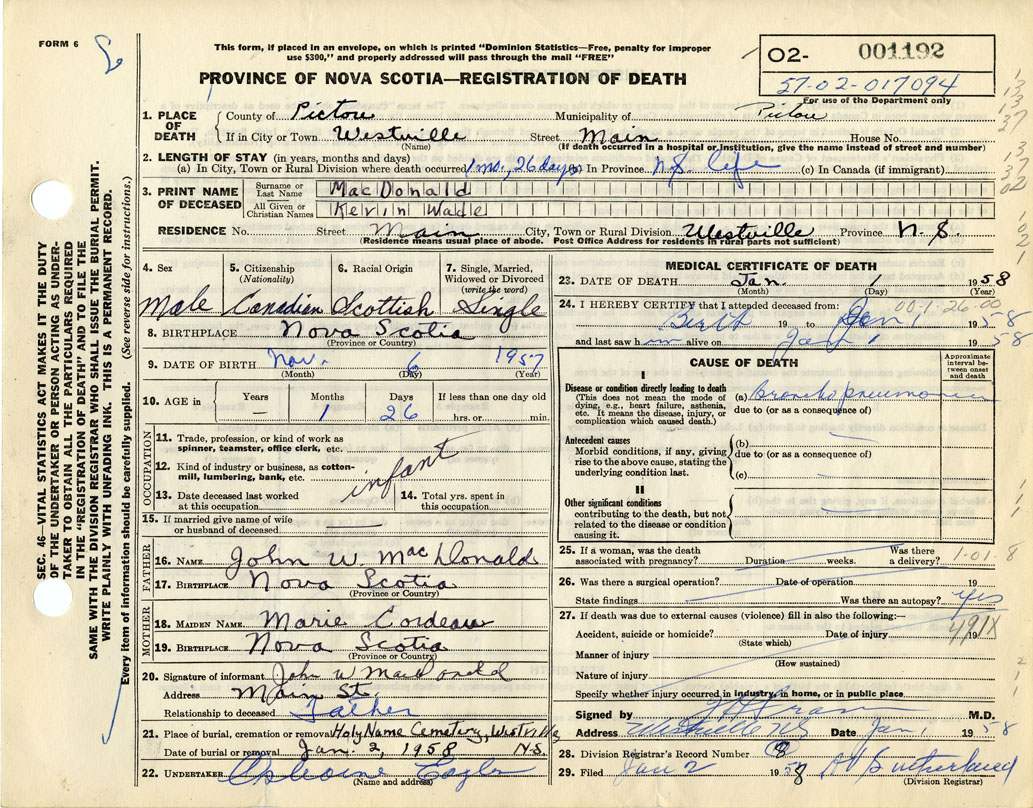 FORM 6
This form, if placed in an envelope, on which is printed "Dominion Statistics—Free, penalty for improper
use $300," and properly addressed will pass through the mail "FREE"
PROVINCE OF NOVA SCOTIA—REGISTRATION OF DEATH
O2- 001192
57-02-017094
For use of the Department only
1. PLACE OF DEATH
County of Pictou Municipality of Pictou
If in City or Town Westville Street Main House No.
(Name) (If death occurred in a hospital or institution, give the name instead of street and number)
2. LENGTH OF STAY (in years, months and days)
(a) In City, Town or Rural Division where death occurred 1 mo., 26 days (b) In Province N.S. life (c) In Canada (if immigrant)
3. PRINT NAME OF DECEASED
Surname or Last Name MacDonald
All Given or Christian Names Kevin Wade
RESIDENCE No. Street Main City, Town or Rural Division Westville Province N.S.
(Residence means usual place of abode. Post Office Address for residents in rural parts not sufficient)
SEC. 46—VITAL STATISTICS ACT MAKES IT THE DUTY
OF THE UNDERTAKER OR PERSON ACTING AS UNDER-
TAKER TO OBTAIN ALL THE PARTICULARS REQUIRED
IN THE "REGISTRATION OF DEATH" AND TO FILE THE
SAME WITH THE DIVISION REGISTRAR WHO SHALL ISSUE THE BURIAL PERMIT.
WRITE PLAINLY WITH UNFADING INK. THIS IS A PERMANENT RECORD.
Every item of information should be carefully supplied. (See reverse side for instructions.)
4. Sex 5. Citizenship (Nationality) 6. Racial Origin 7. Single, Married, Widowed or Divorced (write the word)
Male Canadian Scottish Single
8. BIRTHPLACE Nova Scotia
(Province or Country)
9. DATE OF BIRTH Nov. 6 1957
(Month) (Day) (Year)
10. AGE in Years Months Days If less than one day old
— 1 26 hrs. or min.
OCCUPATION
11. Trade, profession, or kind of work as
spinner, teamster, office clerk, etc.
12. Kind of industry or business, as cotton-
mill, lumbering, bank, etc.
infant
13. Date deceased last worked
at this occupation
14. Total yrs. spent in
this occupation
15. If married give name of wife
or husband of deceased
FATHER
16. NAME John W. MacDonald
17. BIRTHPLACE Nova Scotia
(Province or Country)
MOTHER
18. MAIDEN NAME Marie Cordeau
19. BIRTHPLACE Nova Scotia
(Province or Country)
20. Signature of informant John W MacDonald
Address Main St.
Relationship to deceased Father
21. Place of burial, cremation or removal Holy Name Cemetery, Westville
Date of burial or removal Jan. 2, 1958 N.S.
22. UNDERTAKER
(Name and address)
MEDICAL CERTIFICATE OF DEATH
23. DATE OF DEATH Jan. 1 1958
(Month) (Day) (Year)
24. I HEREBY CERTIFY that I attended deceased from: 00-1-26-00
Birth 19 to Jan 1 1958
and last saw him alive on Jan 1 1958
CAUSE OF DEATH
Approximate interval between onset and death
I
Disease or condition directly leading to death
(This does not mean the mode of
dying, e.g., heart failure, asthenia,
etc. It means the disease, injury, or
complication which caused death.)
(a) Bronchopneumonia
due to (or as a consequence of)
Antecedent causes
Morbid conditions, if any, giving
rise to the above cause, stating the
underlying condition last.
(b)
due to (or as a consequence of)
(c)
II
Other significant conditions
contributing to the death, but not
related to the disease or condition
causing it.
25. If a woman, was the death
associated with pregnancy? Duration weeks. Was there a delivery? 1-01-8
26. Was there a surgical operation? Date of operation 19
State findings Was there an autopsy? yes
27. If death was due to external causes (violence) fill in also the following:—
491X
Accident, suicide or homicide? Date of injury 19
(State which)
Manner of injury
(How sustained)
Nature of injury
Specify whether injury occurred in industry, in home, or in public place
Signed by M.D.
Address Westville NS Date Jan 1 1958
28. Division Registrar's Record Number 8
29. Filed Jan 2 1958 Sutherland
(Division Registrar)